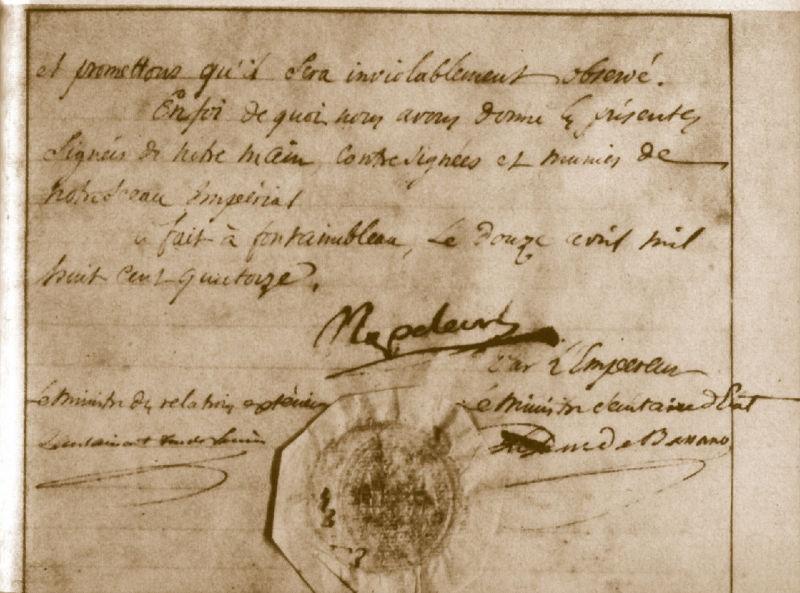 et promettons qu'il sera inviolablement observé.
En foi de quoi nous avons donné les présentes
signées de notre main, contresignées et munies de
notre sceau Impérial
fait à fontainebleau, le douze avril mil
huit cent quatorze.
Napoleon
Par l'Empereur
le ministre des relations extérieures
le Ministre Secretaire d'Etat
duc de Bassano